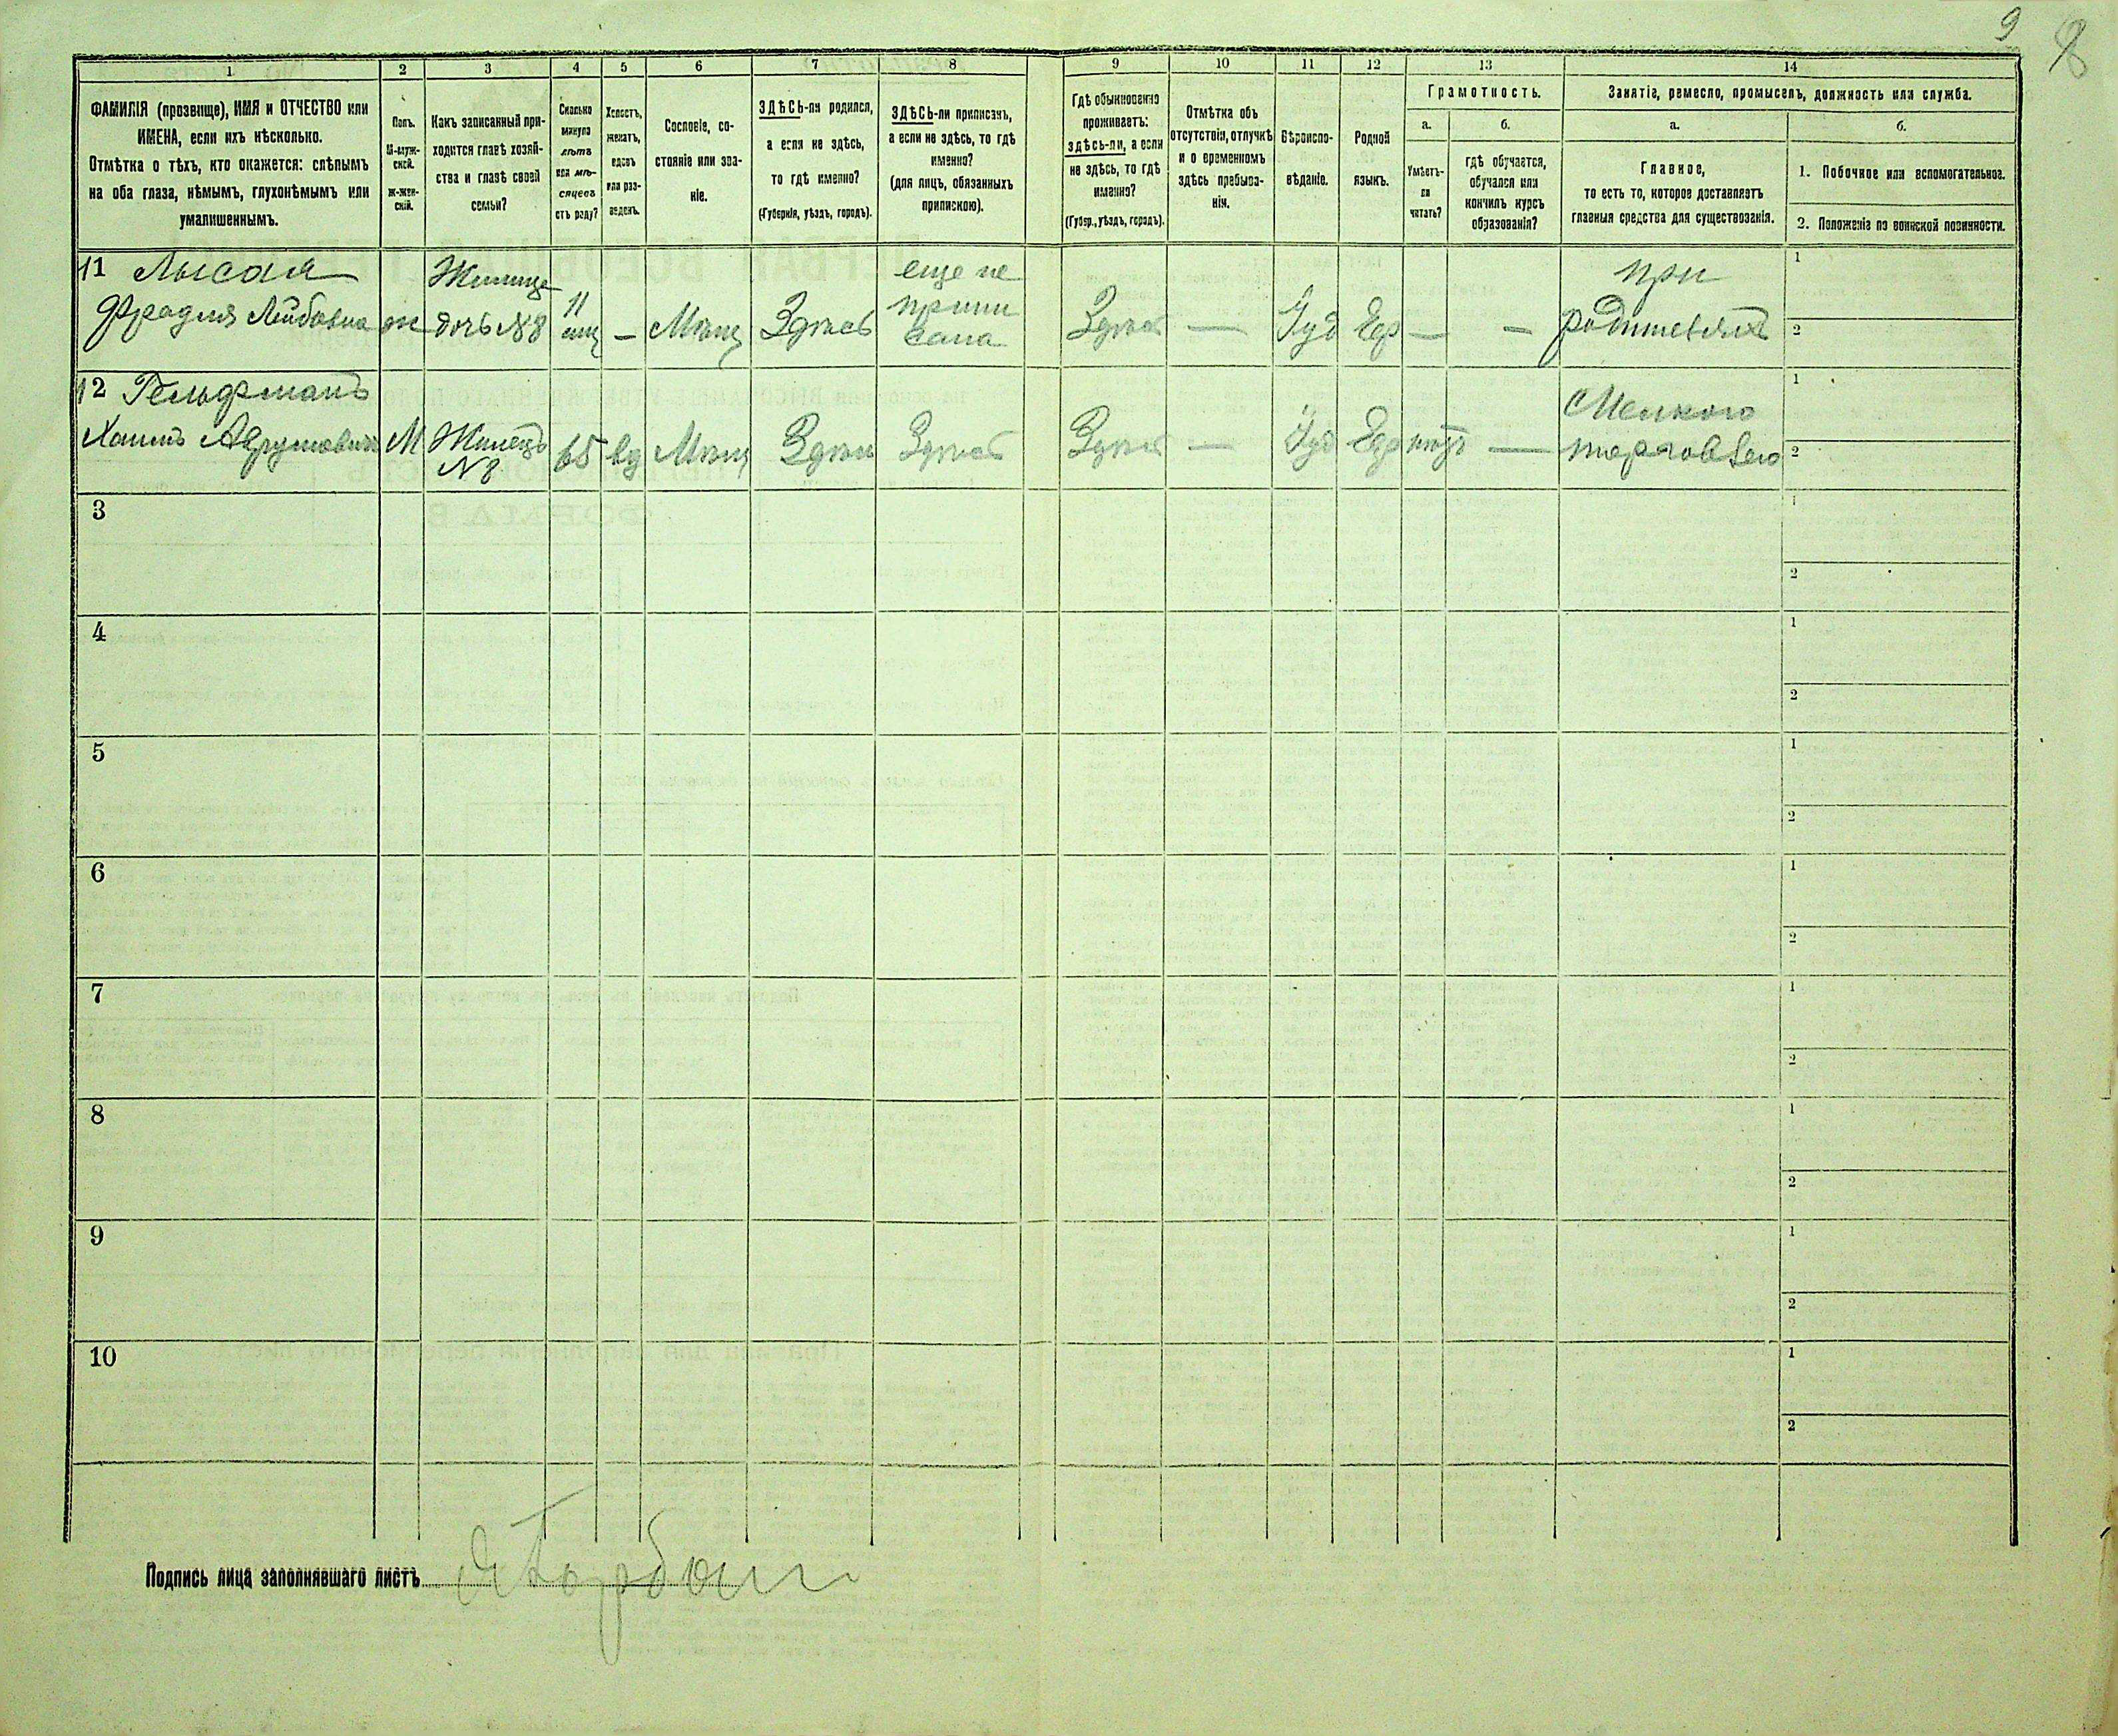 9 8
1 2 3 4 5 6 7 8 9 10 11 12 13 14
ФАМИЛІЯ (прозвище), ИМЯ и ОТЧЕСТВО или
ИМЕНА, если ихъ нѣсколько.
Отмѣтка о тѣхъ, кто окажется: слѣпымъ
на оба глаза, нѣмымъ, глухонѣмымъ или
умалишеннымъ.
Полъ.
М-муж-
ской.
Ж-жен-
скій.
Какъ записанный при-
ходится главѣ хозяй-
ства и главѣ своей
семьи?
Сколько
минуло
лѣтъ
или мѣ-
сяцевъ
отъ роду?
Холостъ,
женатъ,
вдовъ
или раз-
веденъ.
Сословіе, со-
стояніе или зва-
ніе.
ЗДѢСЬ-ли родился,
а если не здѣсь,
то гдѣ именно?
(Губернія, уѣздъ, городъ).
ЗДѢСЬ-ли приписанъ,
а если не здѣсь, то гдѣ
именно?
(для лицъ, обязанныхъ
припискою).
Гдѣ обыкновенно
проживаетъ:
здѣсь-ли, а если
не здѣсь, то гдѣ
именно?
(Губер., уѣздъ, городъ).
Отмѣтка объ
отсутствіи, отлучкѣ
и о временномъ
здѣсь пребыва-
ніи.
Вѣроиспо-
вѣданіе.
Родной
языкъ.
Грамотность.
а.
Умѣетъ-
ли
читать?
б.
гдѣ обучается,
обучался или
кончилъ курсъ
образованія?
Занятіе, ремесло, промыселъ, должность или служба.
а.
Главное,
то есть то, которое доставляетъ
главныя средства для существованія.
б.
1. Побочное или вспомогательное.
2. Положеніе по воинской повинности.
11 Лысая
Фрадля Лейбовна
ж
Жилица
дочь №8
11
мц
—
Мѣщ
Здѣсь
еще не
припи
сана
Здѣсь
—
Іуд
Евр
—
—
при
родителяхъ
1
2
12 Гельфманъ
Хаимъ Аврумовичъ
М
Жилецъ
№8
65
вд
Мѣщ
Здѣсь
Здѣсь
Здѣсь
—
Іуд
Евр
нѣтъ
—
Мелкою
торговлею
1
2
3
1
2
4
1
2
5
1
2
6
1
2
7
1
2
8
1
2
9
1
2
10
1
2
Подпись лица заполнявшаго листъ